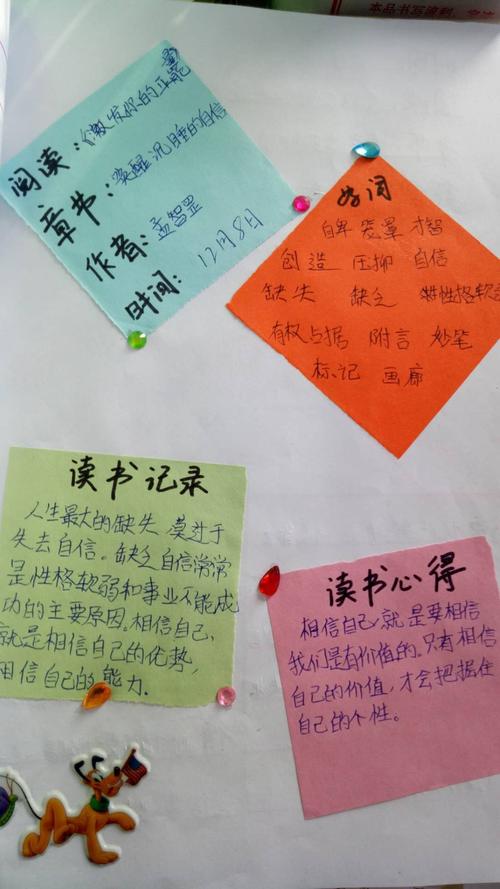 本品书写流利，
阅读：《激发你的正能量
章书：唤醒沉睡的自信
作者：孟智罡
时间：12月8日
好词
自卑 笼罩 才智
创造 压抑 自信
缺失 缺乏 性格软
有权占据 附言 妙笔
标记 画廊
读书记录
人生最大的缺失 莫过于
失去自信。缺乏自信常常
是性格软弱和事业不能成
功的主要原因。相信自己，
就是相信自己的优势，
相信自己的能力.
读书心得
相信自己，就是要相信
我们是有价值的。只有相信
自己的价值，才会把握住
自己的个性。